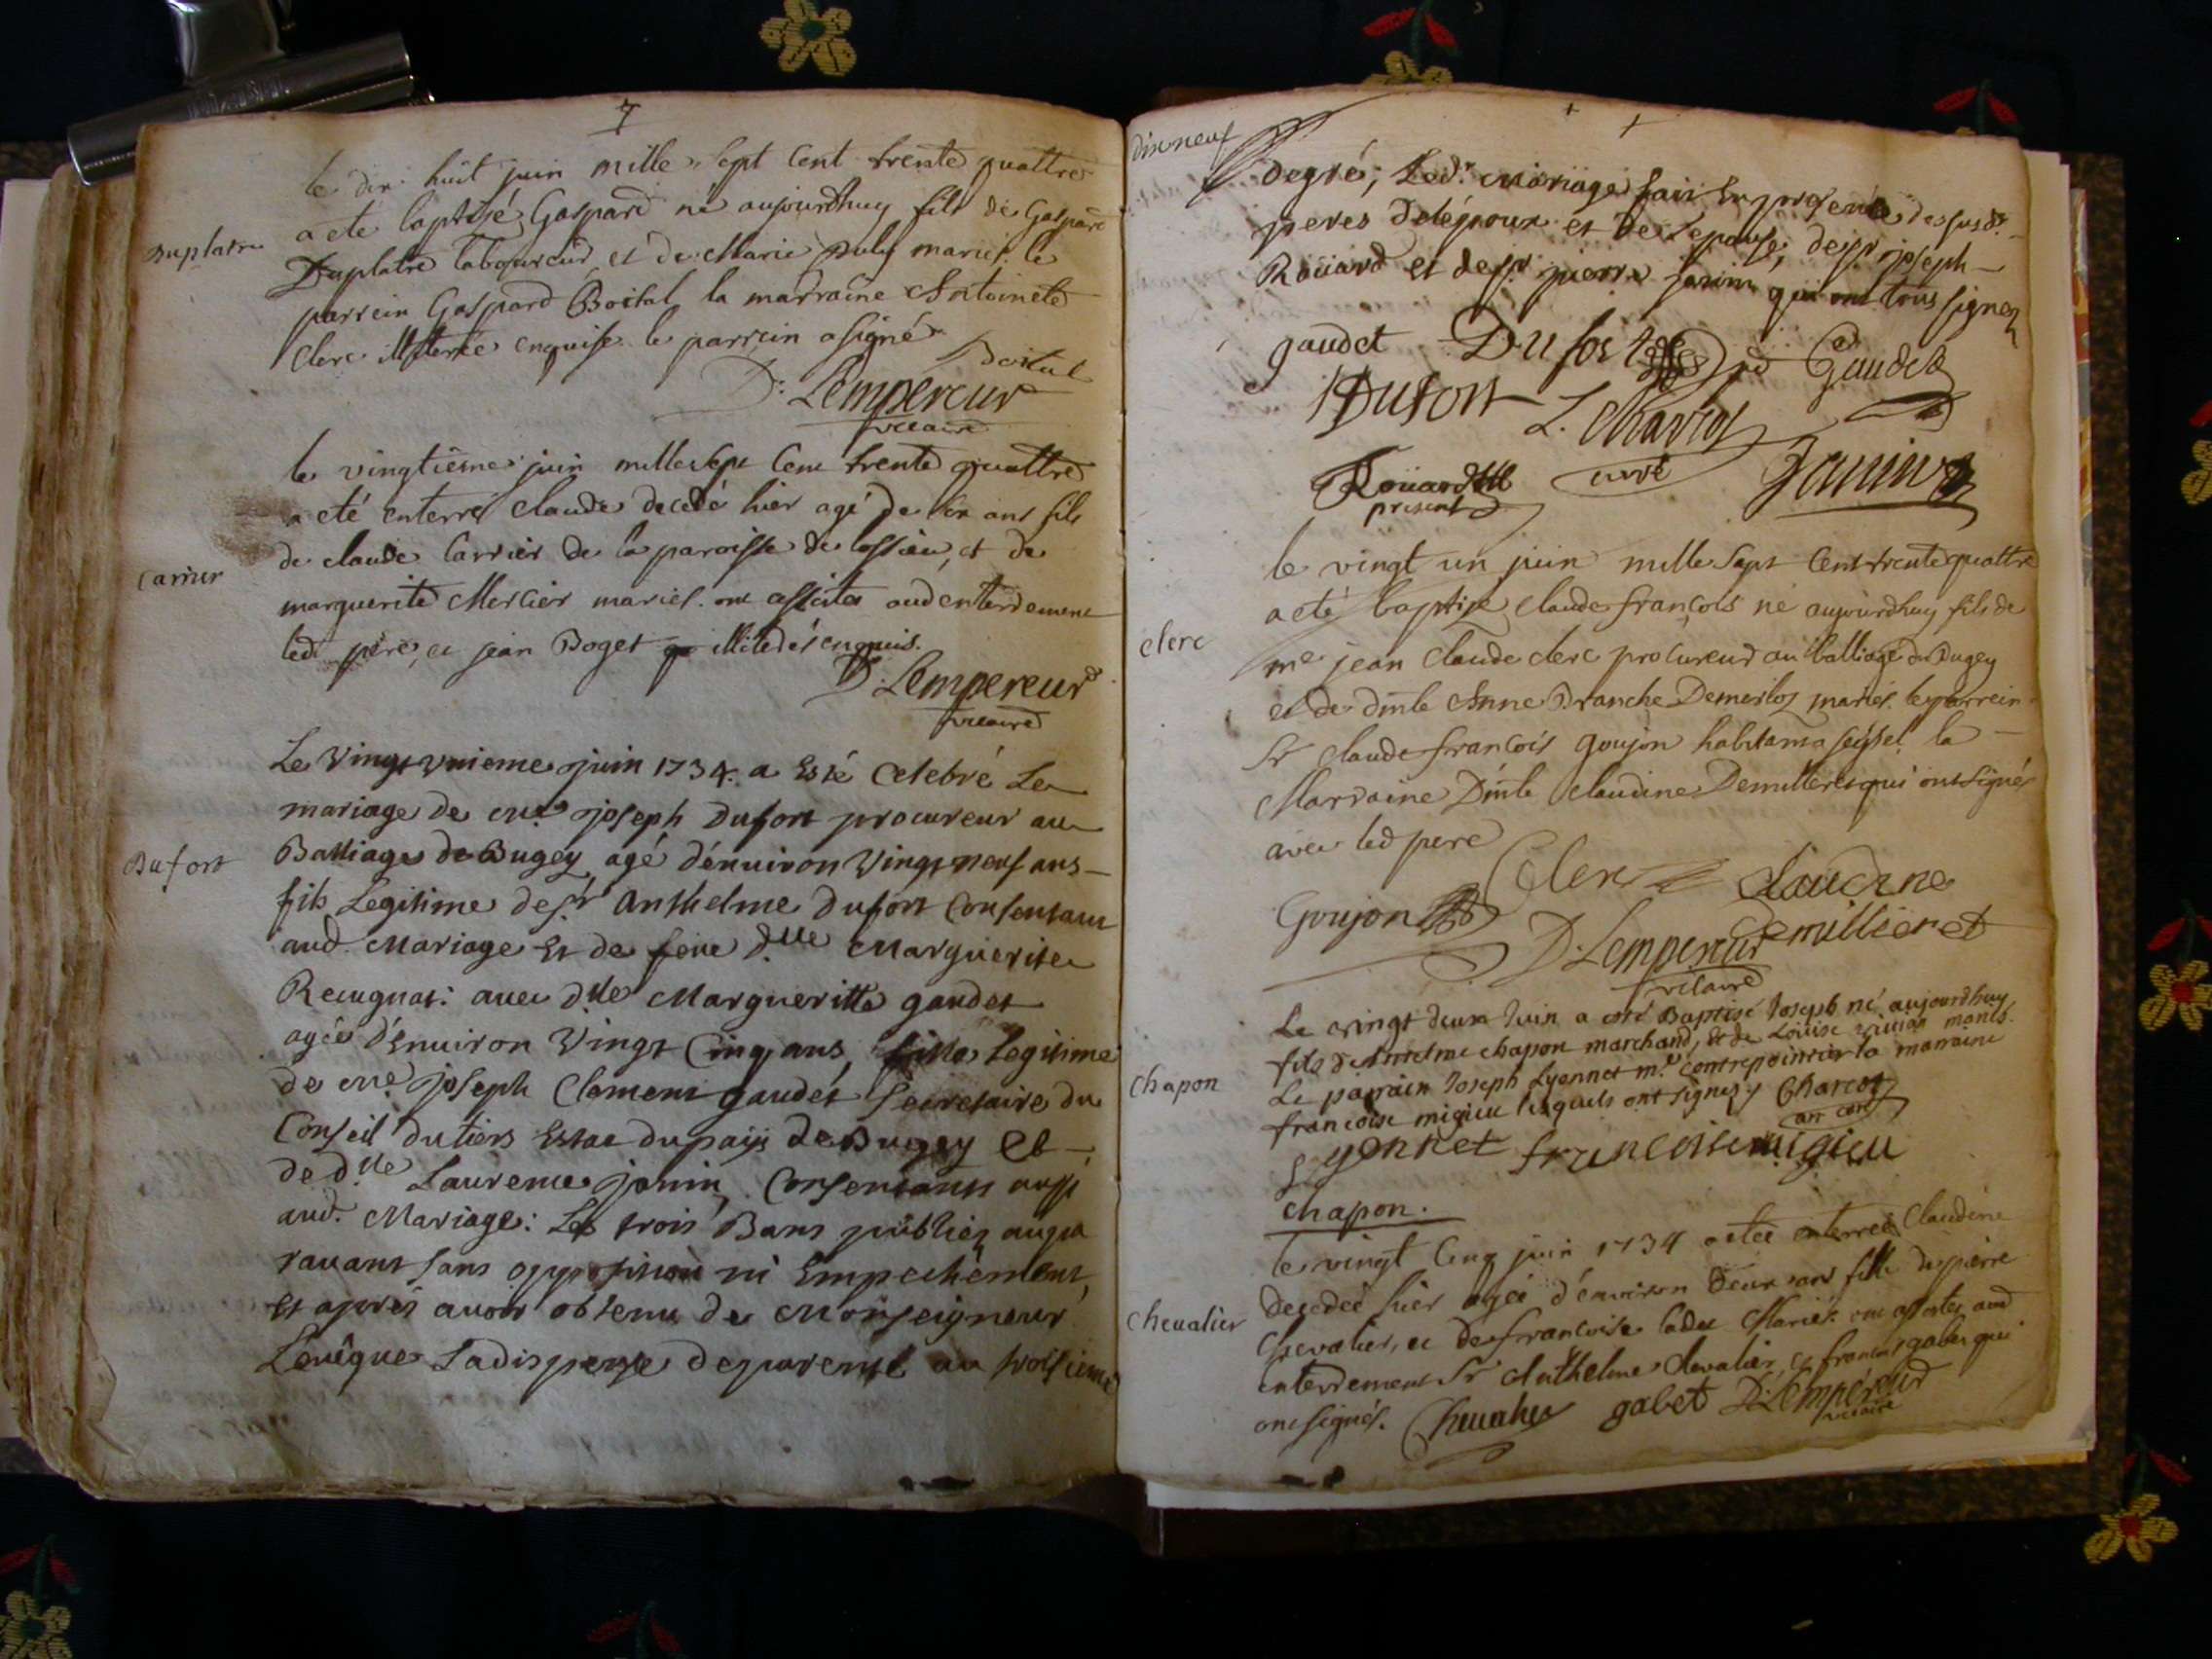 7
le dix huit juin mille sept cent trente quattre
a eté baptisé Gaspard né aujourdhuy fils de Gaspard
Duplatre
Duplatre laboureur et de Marie maries. le
parrein Gaspard Boital la marraine Antoinete
Clerc illiterée enquise le parrein a signé
Boital
D. Lempereur
vicaire
le vingtiéme juin mille sept cent trente quattre
a eté enterré claude decedé hier agé de six ans fils
de claude Carrier de la paroisse de et de
Carrier
marguerite Mercier mariés. ont assisté aud enterrement
led pere, et jean Boget illiterés enquis.
D. Lempereur
vicaire
Le Vingt unieme juin 1734. a Esté Celebré Le
mariage de me joseph Dufort procureur au
Balliage de Bugey agé dénuiron Vingt neuf ans
Dufort
fils Legitime de sr Anthelme Dufort Consentant
aud. Mariage Et de feue d.lle Marguerite
auec d.lle Margueritte gaudet
agée dÉnuiron Vingt Cinq ans, fille Legitime
de me joseph Clement gaudet Secretaire du
Conseil du tiers Estat du païs de Bugey Et
de d.lle Laurence janin, Consentants aussi
aud. Mariage: Les trois Bans publiéz aupa
rauant sans opposition ni Empechement,
Et aprés auoir obtenu de Monseigneur
L'euêque La dispense de parenté au troisieme
dix neuf
degré; Led.t Mariage fait En presence des susd.
peres de lépoux et de Lepouse, de sr joseph
Roüard et de sr pierre janin qui ont tous signez
gaudet Dufort Gaudet
Dufort L. Charcot
curé
Roüard
present
Janin
le vingt un juin mille sept cent trente quattre
a eté baptisé claude françois né aujourdhuy fils de
clerc
me jean claude clerc procureur au balliage du Bugey
et de dmle Anne Branche mariés. le parrein
Sr claude françois goujon habitant a seÿsel la
Marraine Dmle Claudine Demilleret qui ont signés
avec led pere
Clerc Claudine
Goujon
Demillieret
D. Lempereur
vicaire
Le vingt deux Juin a eté Baptisé Joseph né aujourdhuy
fils d'Antelme chapon marchand, & de Loüise mariés.
chapon
Le parrain Joseph Lyonnet m.e contrepointier la marraine
francoise migieu lesquels ont signez Charcot
arc curé
Lyonnet francoise migieu
chapon.
le vingt cinq juin 1734 a eteé enterreé Claudine
decedeé hier ageé d'énuiron deux ans fille de pierre
Cheualier
Chevalier, et de francoise Mariés. ont assistés aud
enterrement Sr Anthelme chevalier, et françois gabet qui
ont signés. Cheualier gabet D. Lempereur
vicaire